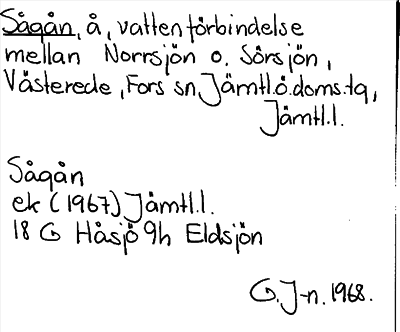 Sågån, å, vattenförbindelse
mellan Norrsjön o. Sörsjön,
Västerede, Fors sn, Jämtl.ö.doms.tg,
Jämtl.l.
Sågån
ek (1967) Jämtl.l.
18 G Håsjö 9h Eldsjön
G. J-n. 1968.